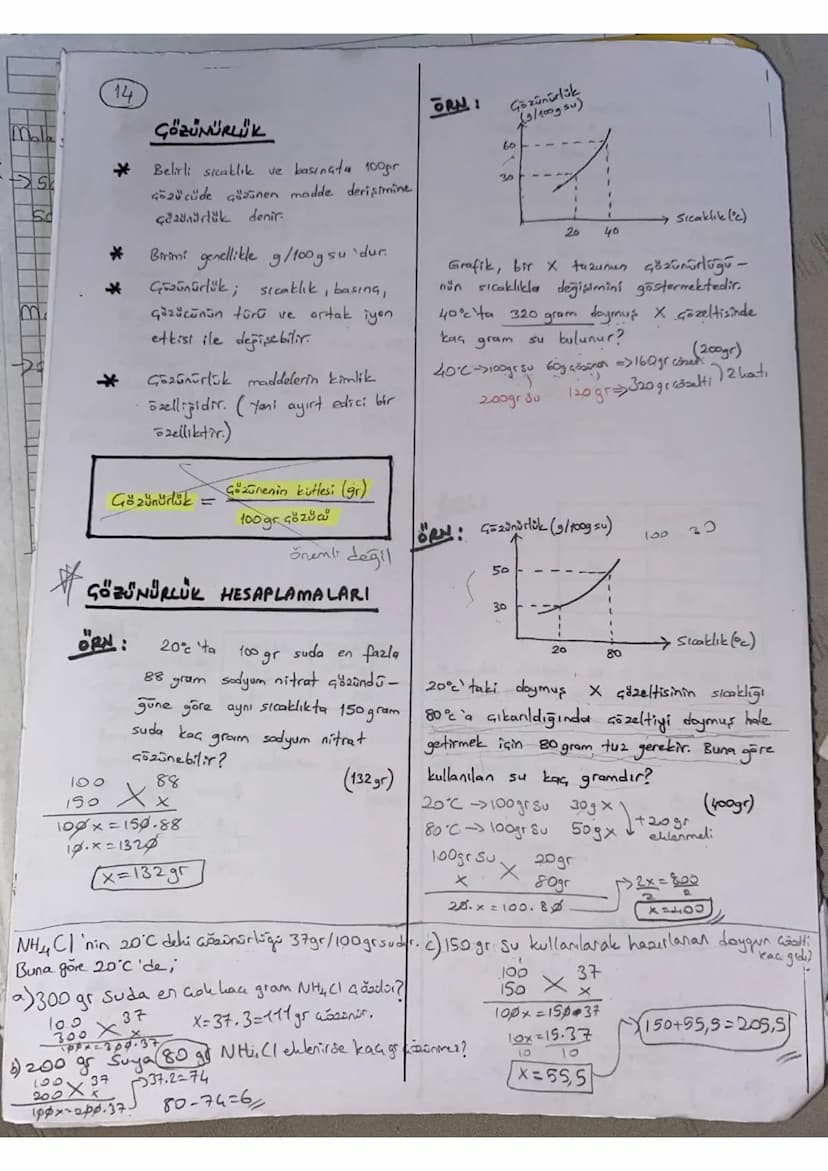 14
ÇÖZÜNÜRLÜK
* Belirli sıcaklık ve basınçta 100gr
çözücüde çözünen madde derişimine
çözünürlük denir.
* Birimi genellikle g/100g su 'dur.
* Çözünürlük; sıcaklık, basınç,
çözücünün türü ve ortak iyon
etkisi ile değişebilir.
* Çözünürlük maddelerin kimlik
özelliğidir. (Yani ayırt edici bir
özelliktir.)
Çözünürlük = Çözünenin kütlesi (gr)
100gr çözücü
önemli değil
ÇÖZÜNÜRLÜK HESAPLAMALARI
ÖRN: 20°C'ta 100gr suda en fazla
88 gram sodyum nitrat çözündü-
ğüne göre aynı sıcaklıkta 150 gram
suda kaç gram sodyum nitrat
çözünebilir?
(132gr)
100 88
150 x
100x=150.88
10.x=1320
x=132gr
ÖRN: Çözünürlük
(g/100g su)
60
30
20 40
Sıcaklık(°C)
Grafik, bir X tuzunun çözünürlüğü-
nün sıcaklıkla değişimini göstermektedir.
40°C'ta 320 gram doymuş X çözeltisinde
kaç gram su bulunur?
(200gr)
40°C→100gr su 60g çözünen ⇒160gr çözelti
200gr su 120gr⇒320gr çözelti 2 katı
ÖRN: Çözünürlük (g/100g su)
100 30
50
30
20 80
Sıcaklık(°C)
20°C'taki doymuş X çözeltisinin sıcaklığı
80°C'a çıkarıldığında çözeltiyi doymuş hale
getirmek için 80 gram tuz gerekir. Buna göre
kullanılan su kaç gramdır?
(400gr)
20°C →100gr su 30g X
80°C→ 100gr su 50g X
+20gr
eklenmeli
100gr su 20gr
x 80gr
20.x=100.80
2x=800
2 2
x=400
NH4Cl'nin 20°C deki çözünürlüğü 37gr/100gr sudur.
Buna göre 20°C'de;
a)300 gr suda en çok kaç gram NH4Cl çözülür?
100 37
300 x
100x=300.37
x=37.3=111gr çözünür.
b)200 gr suya 80 gr NH4Cl eklenirse kaç gr çözünmez?
100 37
200 x
100x=200.37
37.2=74
80-74=6
c)150 gr su kullanılarak hazırlanan doygun çözelti
kaç gr
100 37
150 x
100x=150.37
10x=15.37
10 10
x=55,5
150+55,5=205,5